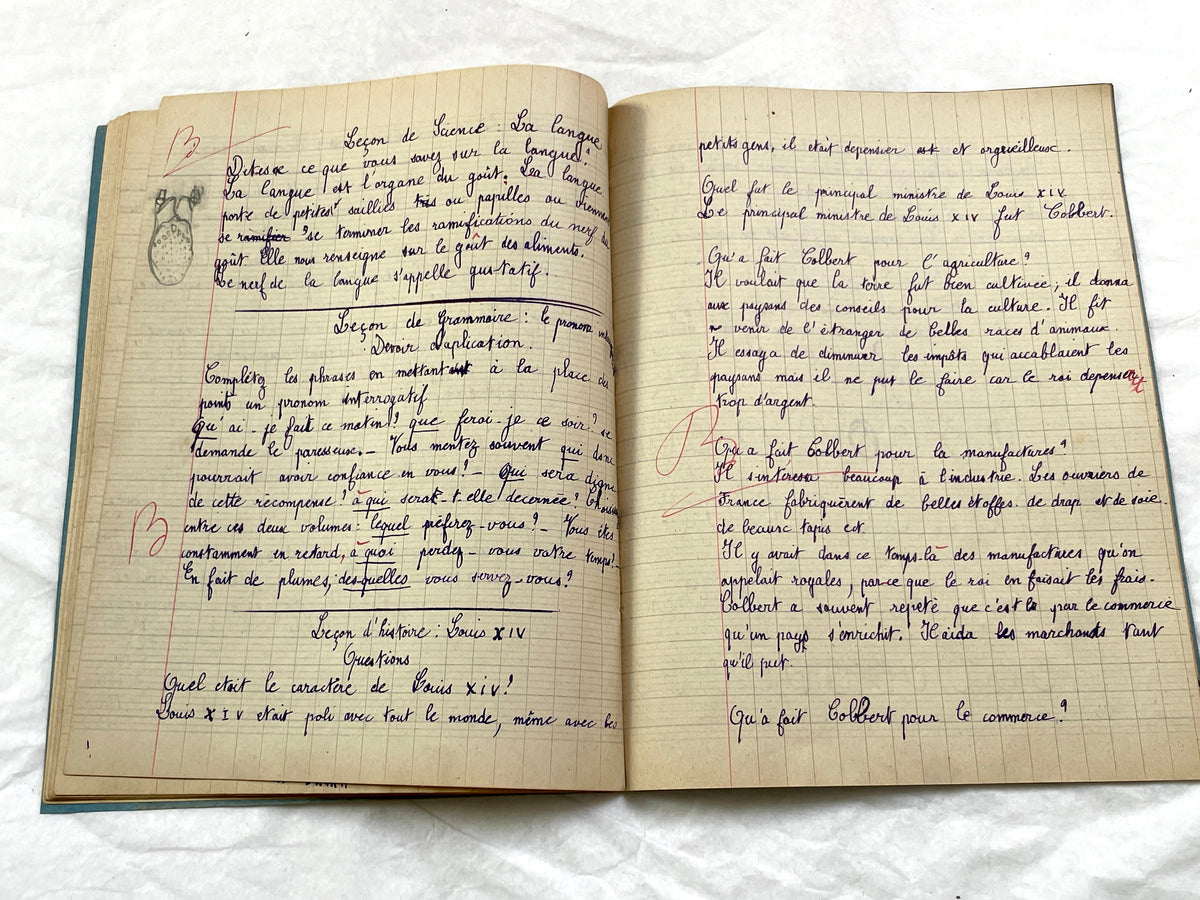 B
Leçon de Science : La langue
Dites ce que vous savez sur la langue.
La langue est l'organe du goût. La langue
porte de petites saillies ou papilles ou viennent
se ramifier se terminer les ramifications du nerf du
goût Elle nous renseigne sur le goût des aliments.
Le nerf de la langue s'appelle gustatif.
Leçon de Grammaire : le pronom
Devoir d'aplication.
Complétez les phrases en mettant à la place des
points un pronom interrogatif
Qu'ai-je fait ce matin? que ferai-je ce soir? se
demande le paresseux. — Vous mentez souvent qui donc
pourrait avoir confiance en vous? — Qui sera digne
de cette récompense? à qui sera-t-elle décernée? Choisissez
entre ces deux volumes : lequel préferez-vous? — Vous êtes
B
constamment en retard, à quoi perdez-vous votre temps? —
En fait de plumes, desquelles vous servez-vous?
Leçon d'histoire : Louis XIV
Questions
Quel etait le caractère de Louis XIV?
Louis XIV etait poli avec tout le monde, même avec les
petits gens, il etait depensier et orgueilleux.
Quel fut le principal ministre de Louis XIV
Le principal ministre de Louis XIV fut Colbert.
Qu'a fait Colbert pour l'agriculture?
Il voulait que la terre fut bien cultivée ; il donna
aux paysans des conseils pour la culture. Il fit
venir de l'étranger de belles races d'animaux.
Il essaya de diminuer les impôts qui accablaient les
paysans mais il ne put le faire car le roi depensait
trop d'argent.
B
Qu'a fait Colbert pour la manufactures?
Il s'intéressa beaucoup à l'industrie. Les ouvriers de
France fabriquèrent de belles étoffes. de drap et de soie.
de beaux tapis ect.
Il y avait dans ce temps-là des manufactures qu'on
appelait royales, parce que le roi en faisait les frais.
Colbert a souvent repeté que c'est par le commerce
qu'un pays s'enrichit. Il aida les marchands tant
qu'il put.
Qu'a fait Colbert pour le commerce?